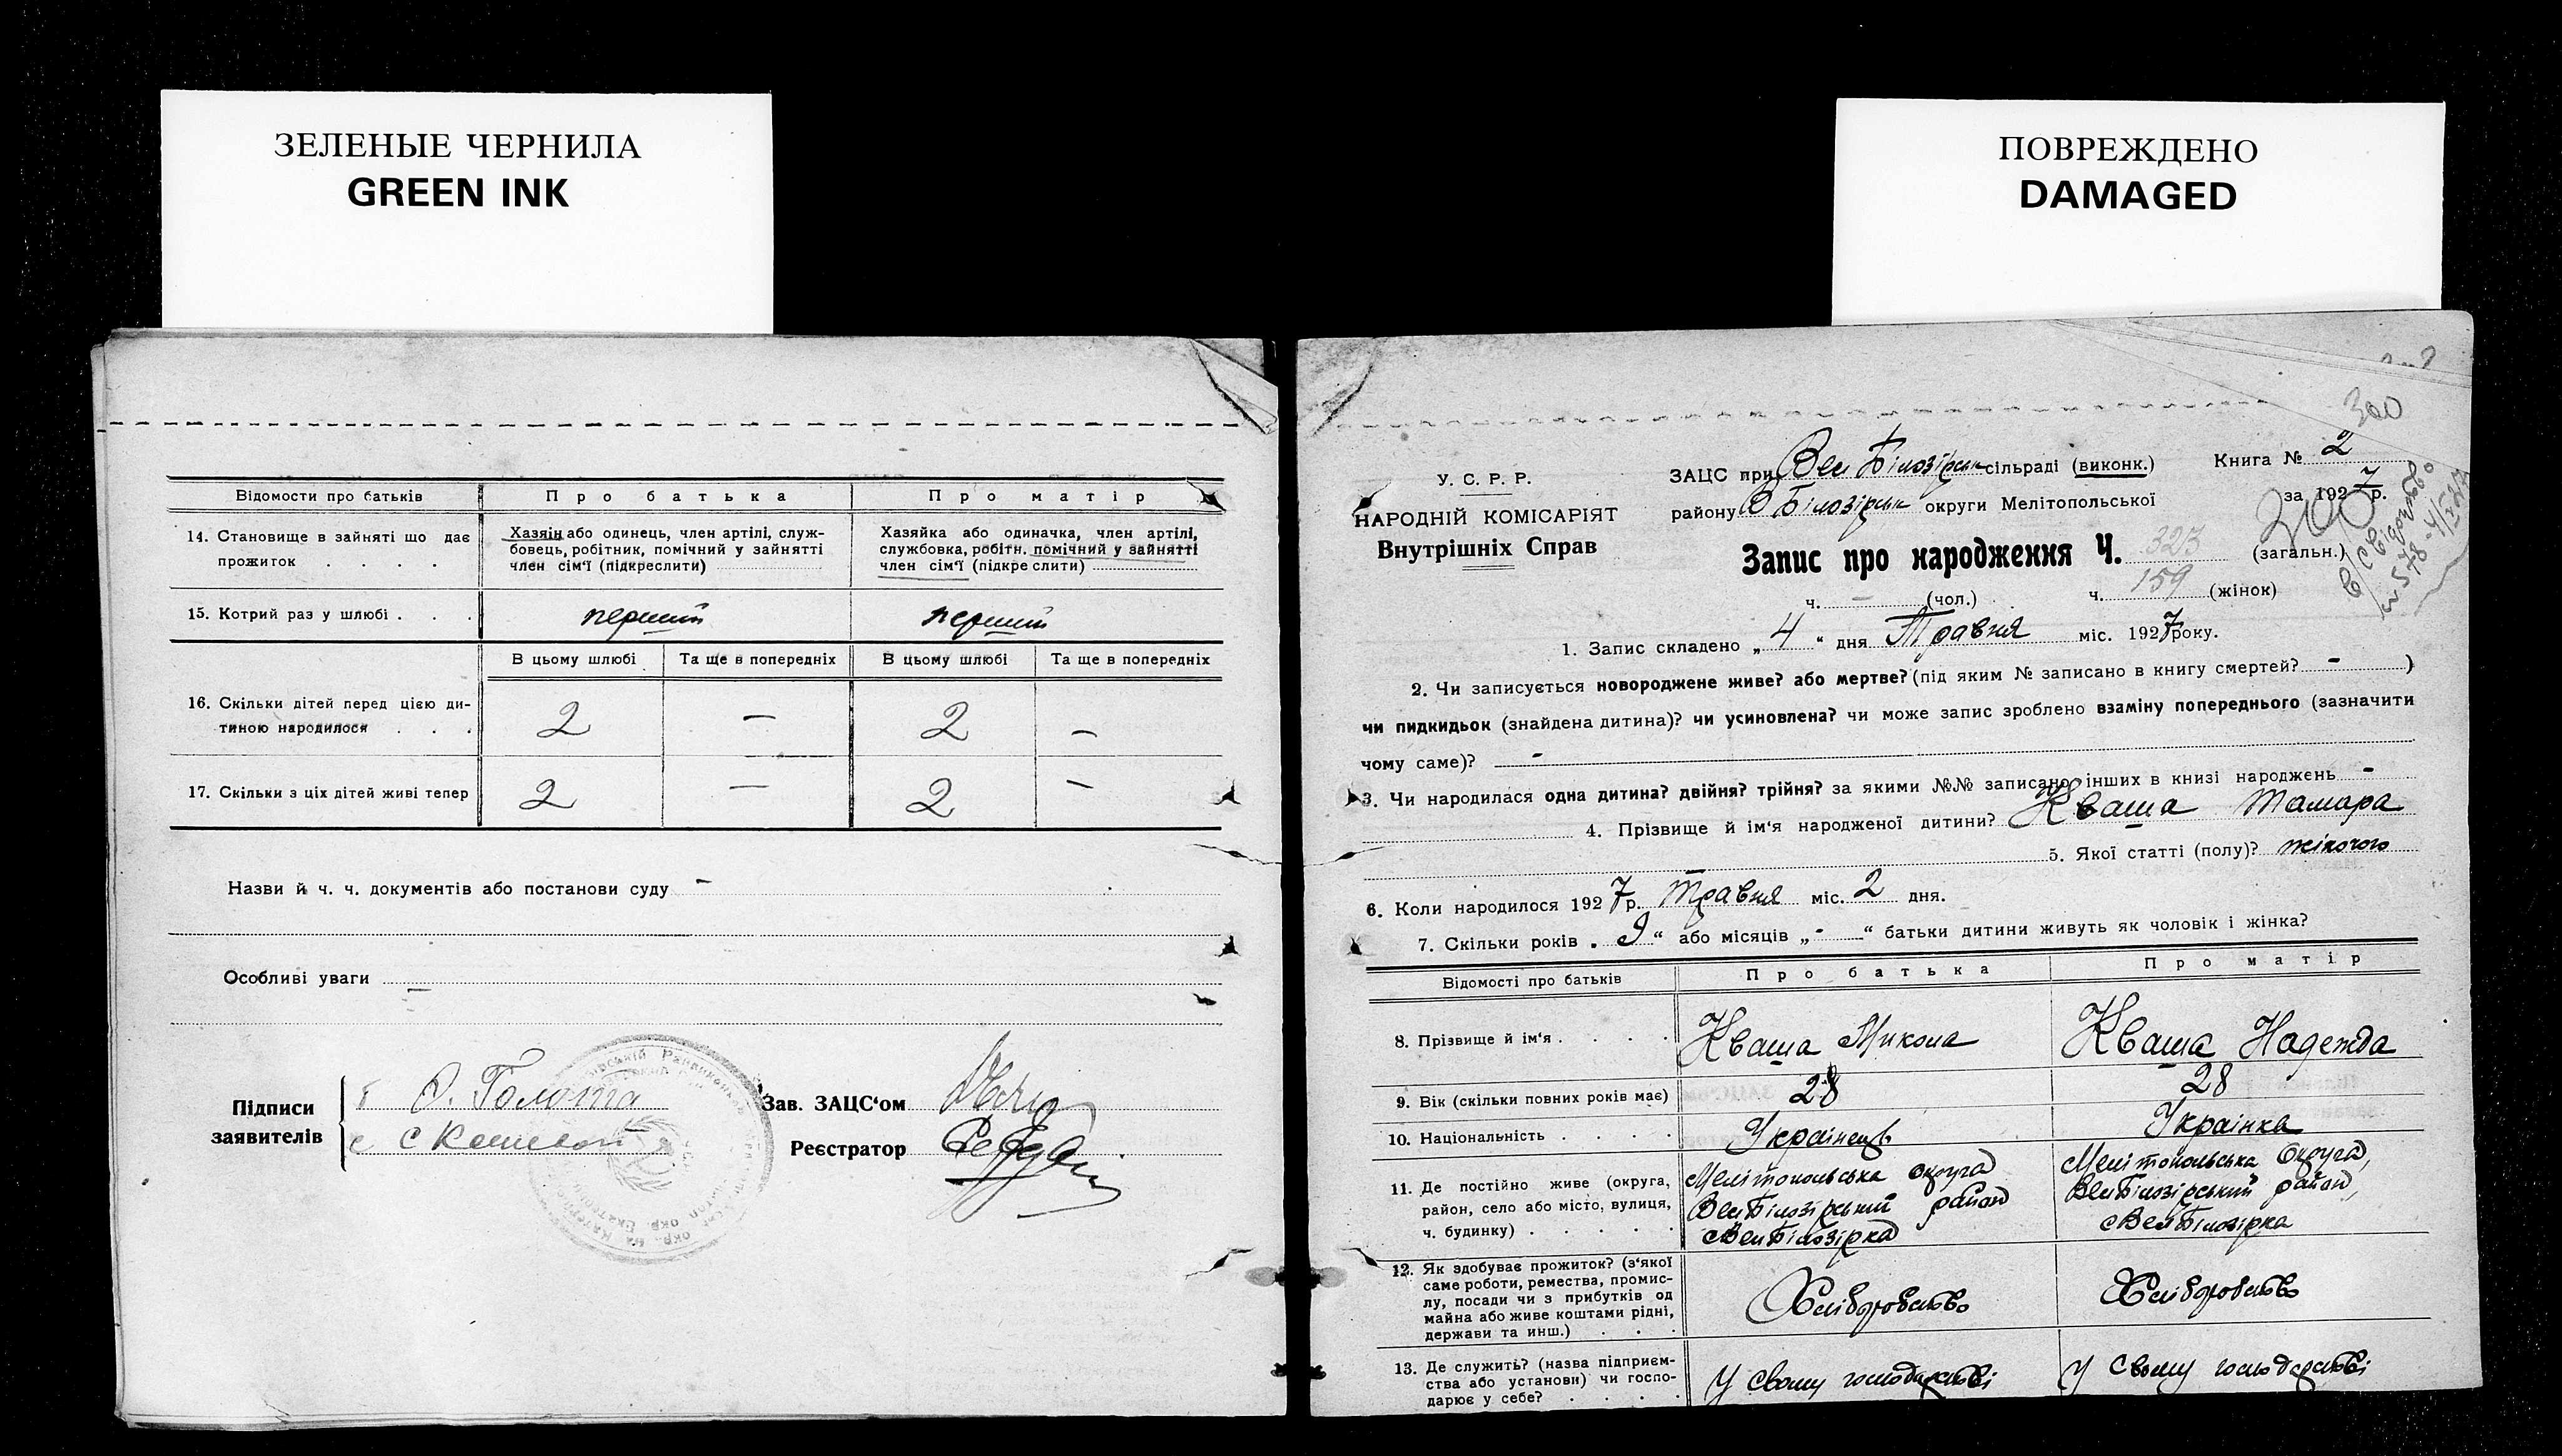 ЗЕЛЕНЫЕ ЧЕРНИЛА
GREEN INK
ПОВРЕЖДЕНО
DAMAGED
Відомости про батьків
Про батька
Про матір
14. Становище в зайняті що дає
прожиток . . . .
Хазяін або одинець, член артілі, служ-
бовець, робітник, помічний у зайнятті
член сім'ї (підкреслити)
Хазяйка або одиначка, член артілі,
службовка, робітн. помічний у зайнятті
член сім'ї (підкре слити)
15. Котрий раз у шлюбі . . .
перший
перший
В цьому шлюбі
Та ще в попередніх
В цьому шлюбі
Та ще в попередніх
16. Скільки дітей перед цією ди-
тиною народилося . . .
2 — 2 —
17. Скільки з ціх дітей живі тепер
2 — 2 —
Назви й ч. ч. документів або постанови суду -
Особливі уваги —
Підписи
заявителів
О. Голота
Зав. ЗАЦС'ом
Реєстратор
300
У. С. Р. Р.
НАРОДНІЙ КОМІСАРІЯТ
Внутрішніх Справ
ЗАЦС при Вел Білозірськ сільраді (виконк.)
району В Білозірськ округи Мелітопольської
Книга № 2
за 1927 р.
300
Запис про народження Ч. 323 (загальн.)
ч. — (чол.) ч. 159 (жінок)
1. Запис складено „ 4 “ дня Травня міс. 1927 року.
2. Чи записується новороджене живе? або мертве? (під яким № записано в книгу смертей? - )
чи пидкидьок (знайдена дитина)? чи усиновлена? чи може запис зроблено взаміну попереднього (зазначити
чому саме)? -
3. Чи народилася одна дитина? двійня? трійня? за якими №№ записано інших в книзі народжень -
4. Прізвище й ім'я народженої дитини? Кваша Тамара
5. Якої статті (полу)? жіночого
6. Коли народилося 1927 р. Травня міс. 2 дня.
7. Скільки років „ 9 “ або місяців „ - “ батьки дитини живуть як чоловік і жінка?
Відомості про батьків
Про батька
Про матір
8. Прізвище й ім'я . . . .
Кваша Микола
Кваша Надежда
9. Вік (скільки повних років має)
28
28
10. Національність . . . .
Українець
Українка
11. Де постійно живе (округа,
район, село або місто, вулиця,
ч. будинку) . . . . .
Мелітопольська округа
ВелБілозірський район
с ВелБілозірка
Мелітопольська Округа,
ВелБілозірський район,
с ВелБілозірка
12. Як здобуває прожиток? (з'якої
саме роботи, ремества, промис-
лу, посади чи з прибутків од
майна або живе коштами рідні,
держави та инш.) . . .
Хліборобство
Хліборобство
13. Де служить? (назва підприєм-
ства або установи) чи госпо-
дарює у себе? . . . .
У свому господарстві
У свому господарстві